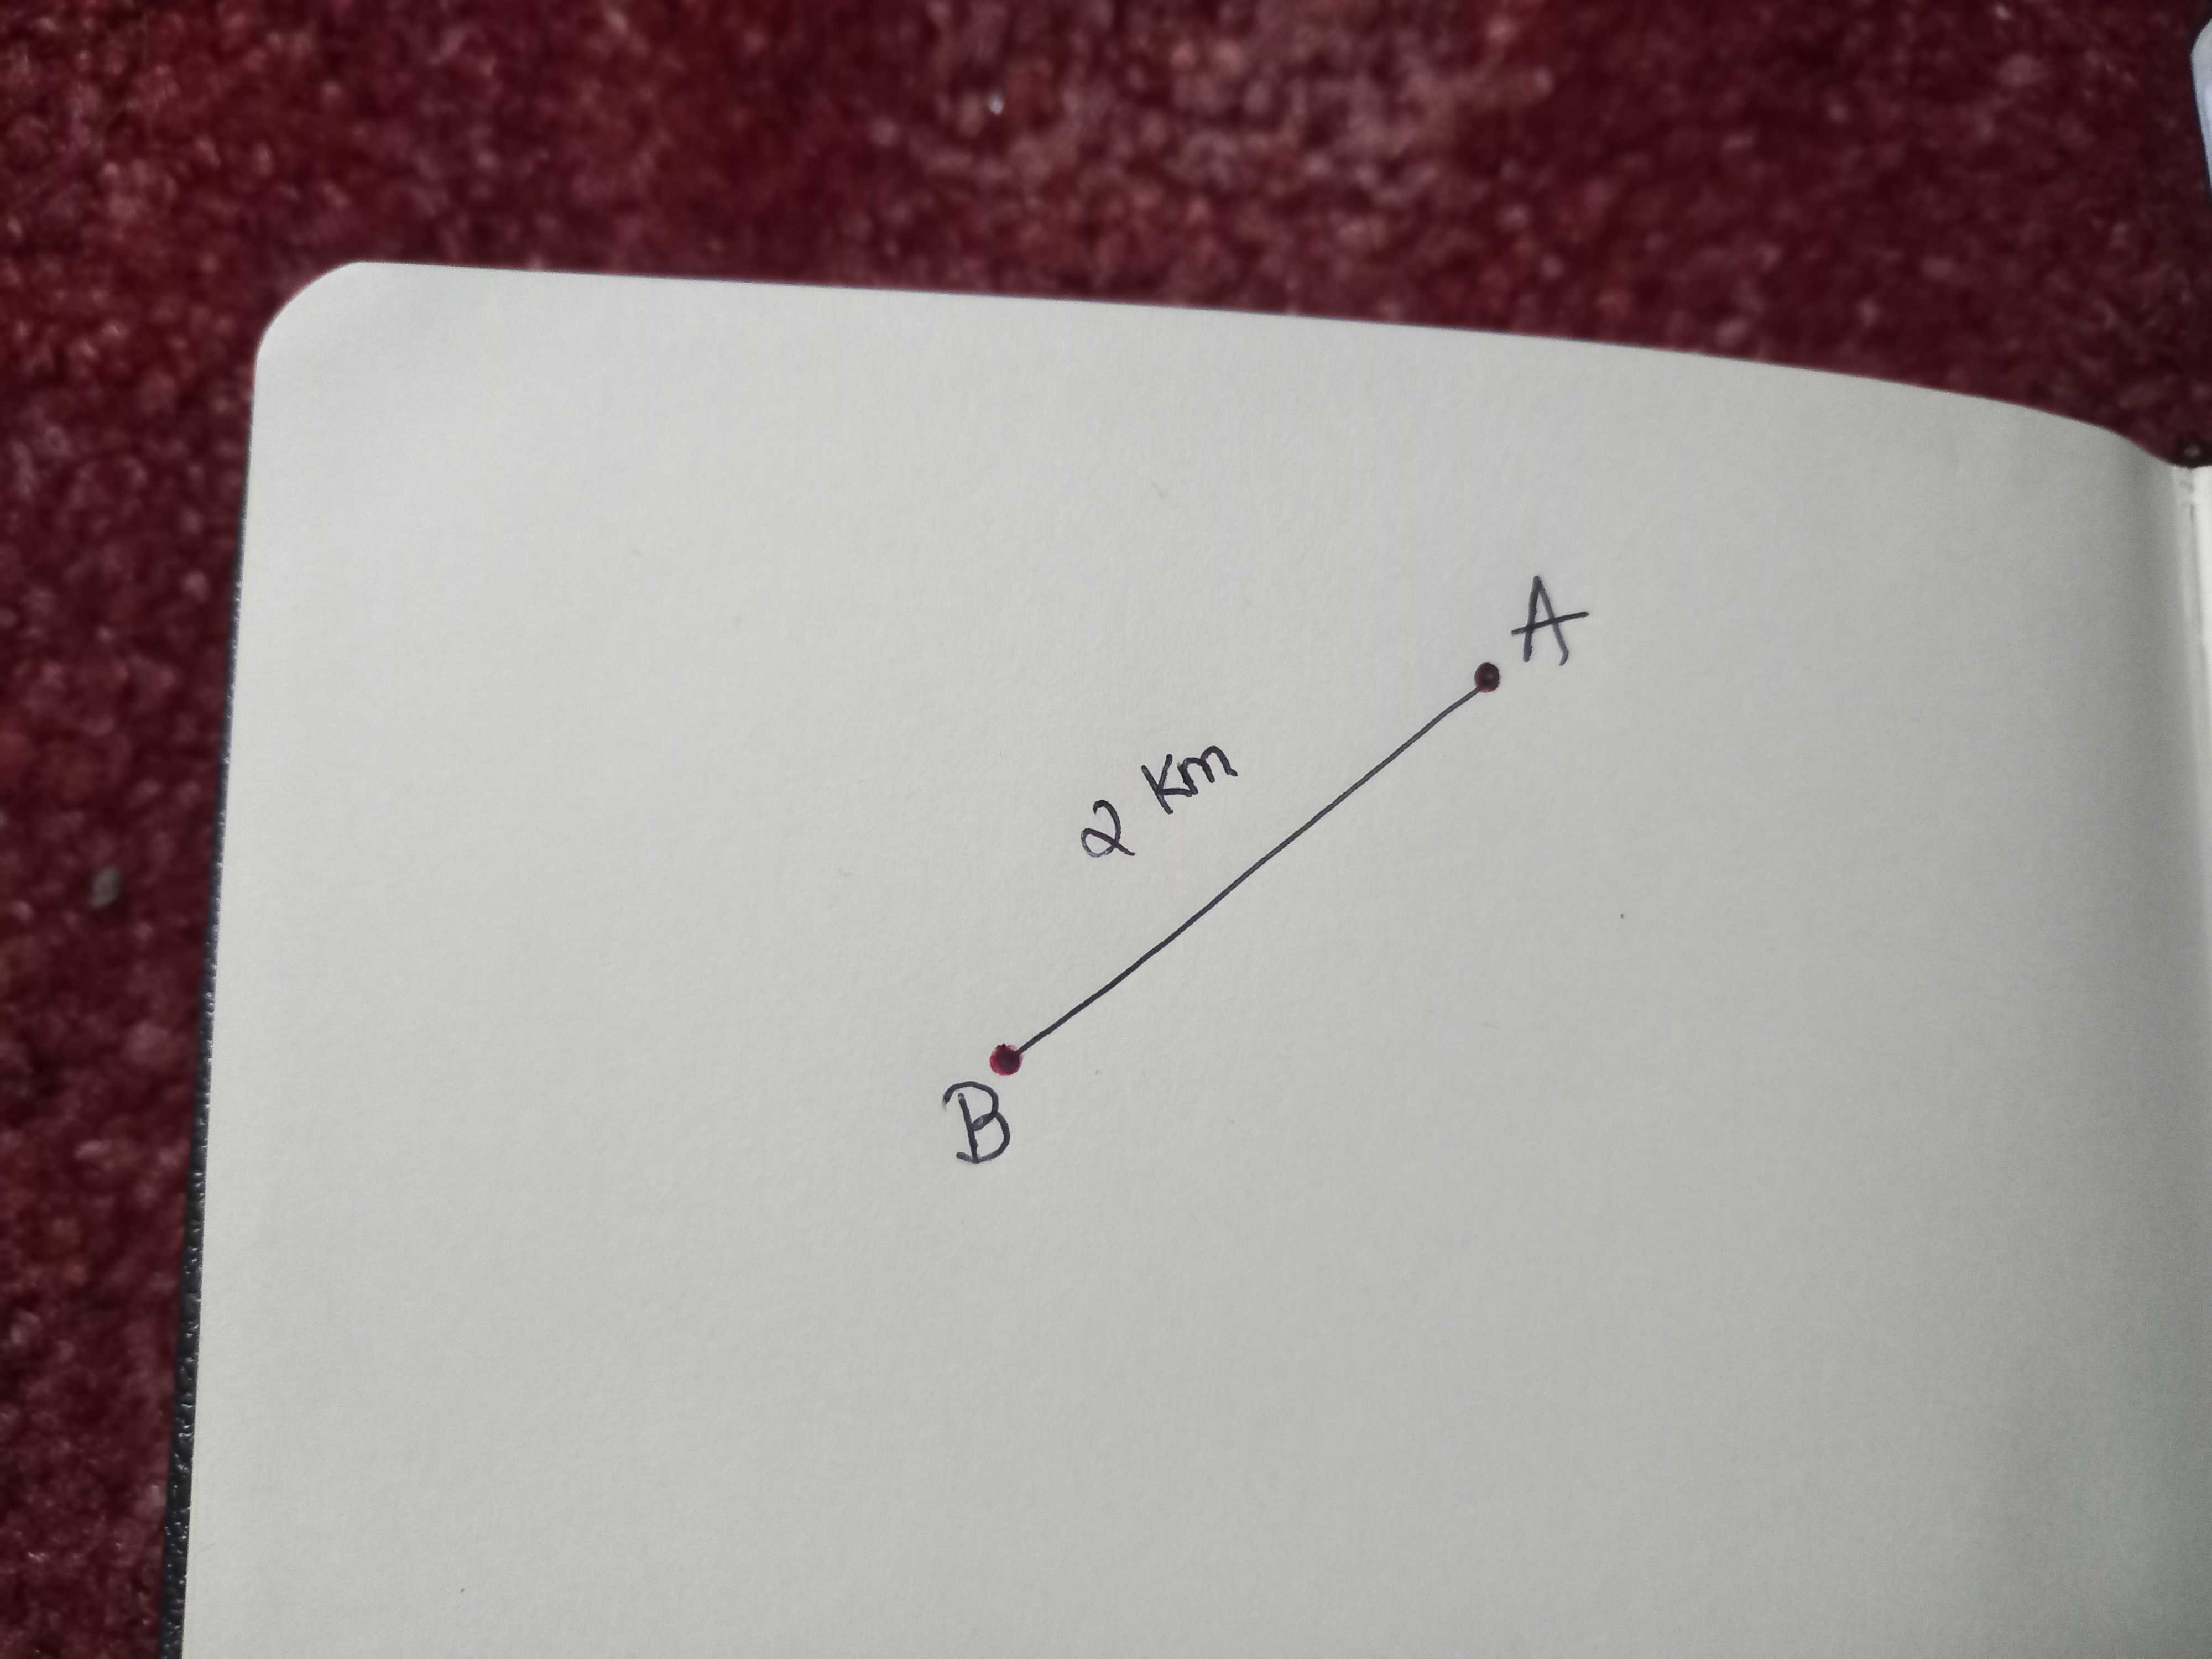 A
2 Km
B